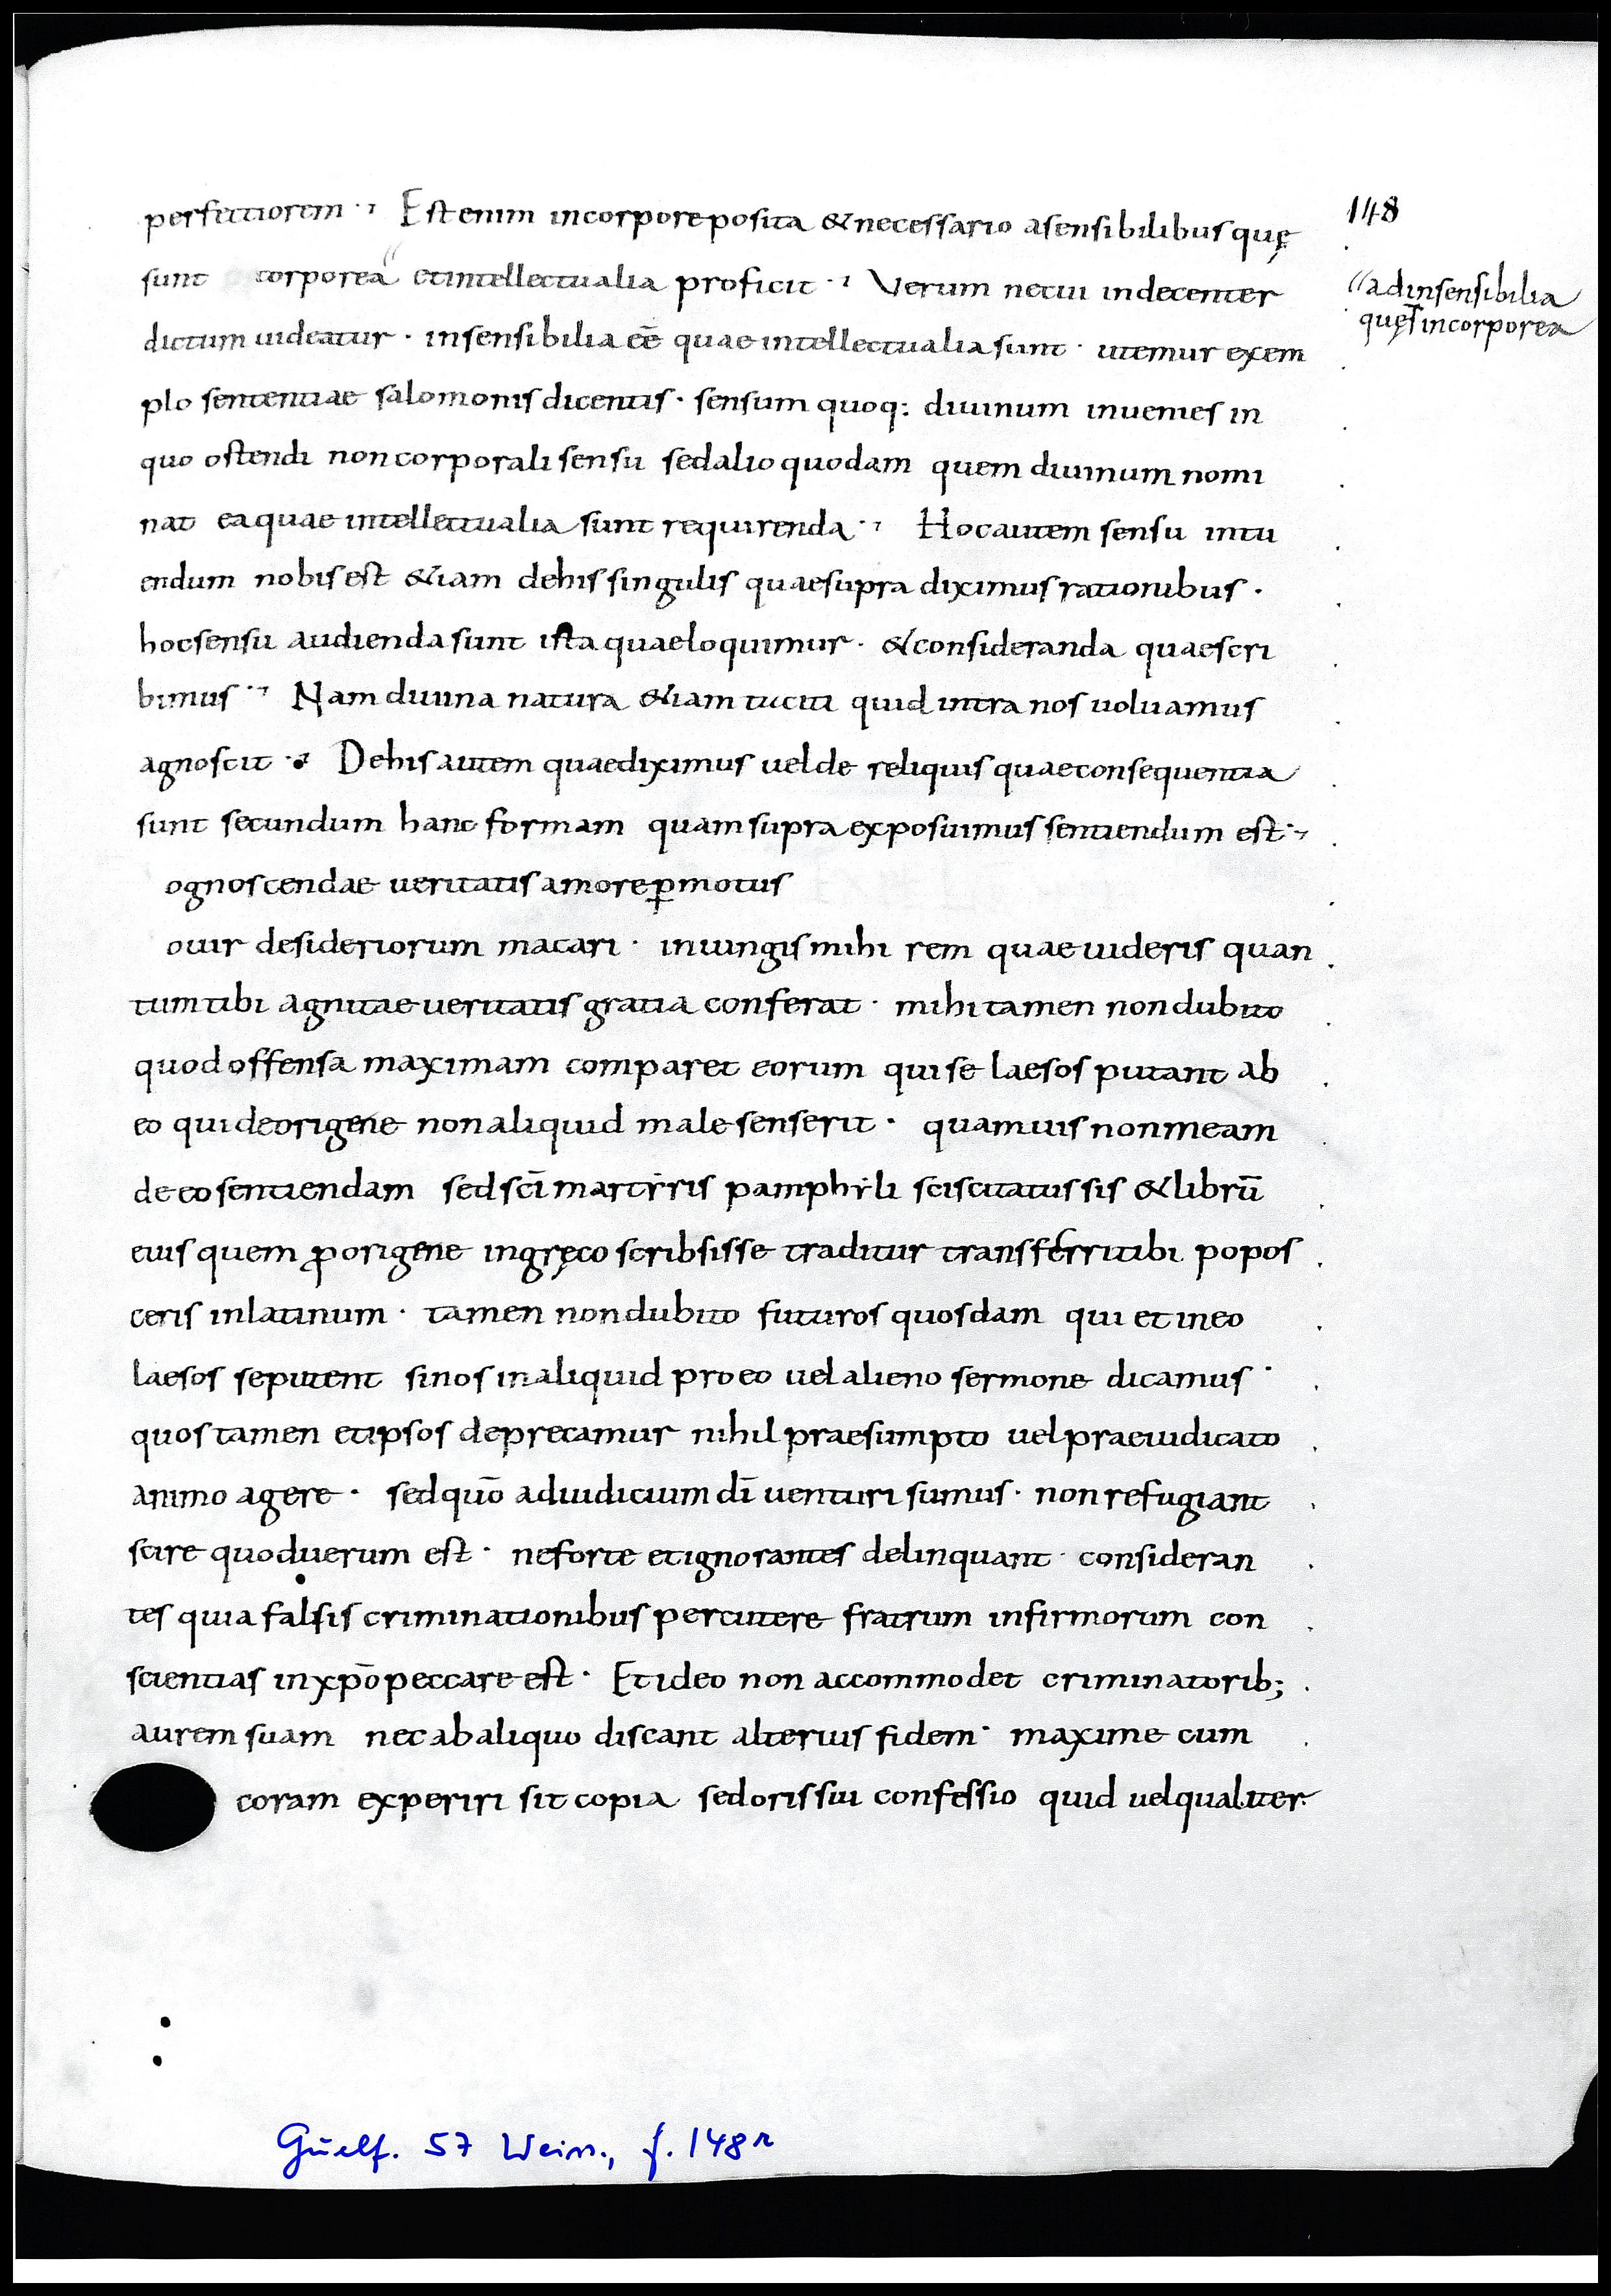 148
perfectiorem · Est enim in corpore posita & necessario a sensibilibus quę
sunt corporea et intellectualia proficit · Verum ne cui indecenter
"ad insensibilia
quę s̄ incorporea
dictum uideatur · insensibilia eē quae intellectualia sunt · utemur exem
plo sententiae salomonis dicentis · sensum quoq: diuinum inuenies in
quo ostendi non corporali sensu sed alio quodam quem diuinum nomi
nat ea quae intellectualia sunt requirenda · Hoc autem sensu intu
endum nobis est &iam de his singulis quae supra diximus rationibus ·
hoc sensu audienda sunt ista quae loquimur · & consideranda quae scri
bimus · Nam diuina natura &iam tuciti quid intra nos uoluamus
agnoscit · De his autem quae diximus uel de reliquis quae consequentia
sunt secundum hanc formam quam supra exposuimus sentiendum est ·
ognoscendae ueritatis amore ꝑmotus
o uir desideriorum macari · iniungis mihi rem quae uideris quan
tum tibi agnitae ueritatis gratia conferat · mihi tamen non dubito
quod offensa maximam comparet eorum qui se laesos putant ab
eo qui de origene non aliquid male senserit · quamuis non meam
de eo sentiendam sed scī martyris pamphyli sciscitatus sis & librū
eius quem ꝓ origene in gręco scribsisse traditur transferri tibi popos
ceris in latinum · tamen non dubito futuros quosdam qui et in eo
laesos se putent si nos in aliquid pro eo uel alieno sermone dicamus ·
quos tamen et ipsos deprecamur nihil praesumpto uel praeiudicato
animo agere · sed quō ad iudicium dī uenturi sumus · non refugiant
scire quod uerum est · ne forte et ignorantes delinquant · consideran
tes quia falsis criminationibus percutere fratrum infirmorum con
scientias in xpō peccare est · Et ideo non accommodet criminatorib;
aurem suam nec ab aliquo discant alterius fidem · maxime cum
coram experiri sit copia sed oris sui confessio quid uel qualiter
Guelf. 57 Weiss., f. 148r